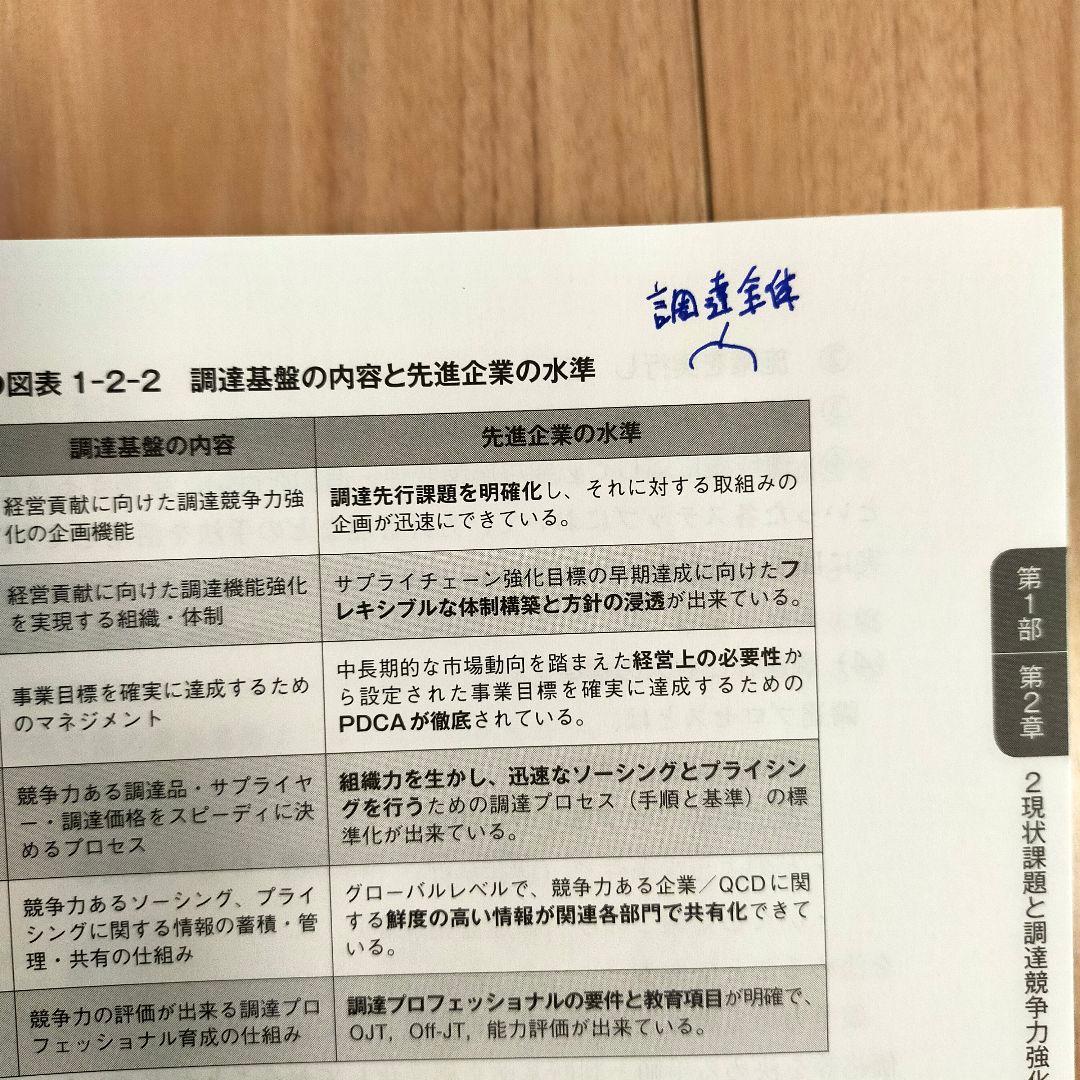 調達全体
図表 1-2-2 調達基盤の内容と先進企業の水準
調達基盤の内容
先進企業の水準
経営貢献に向けた調達競争力強
化の企画機能
調達先行課題を明確化し、それに対する取組みの
企画が迅速にできている。
経営貢献に向けた調達機能強化
を実現する組織・体制
サプライチェーン強化目標の早期達成に向けたフ
レキシブルな体制構築と方針の浸透が出来ている。
事業目標を確実に達成するため
のマネジメント
中長期的な市場動向を踏まえた経営上の必要性か
ら設定された事業目標を確実に達成するための
PDCAが徹底されている。
競争力ある調達品・サプライヤ
ー・調達価格をスピーディに決
めるプロセス
組織力を生かし、迅速なソーシングとプライシン
グを行うための調達プロセス（手順と基準）の標
準化が出来ている。
競争力あるソーシング、プライ
シングに関する情報の蓄積・管
理・共有の仕組み
グローバルレベルで、競争力ある企業／QCDに関
する鮮度の高い情報が関連各部門で共有化できて
いる。
競争力の評価が出来る調達プロ
フェッショナル育成の仕組み
調達プロフェッショナルの要件と教育項目が明確で、
OJT，Off-JT，能力評価が出来ている。
第1部
第2章
2現状課題と調達競争力強化